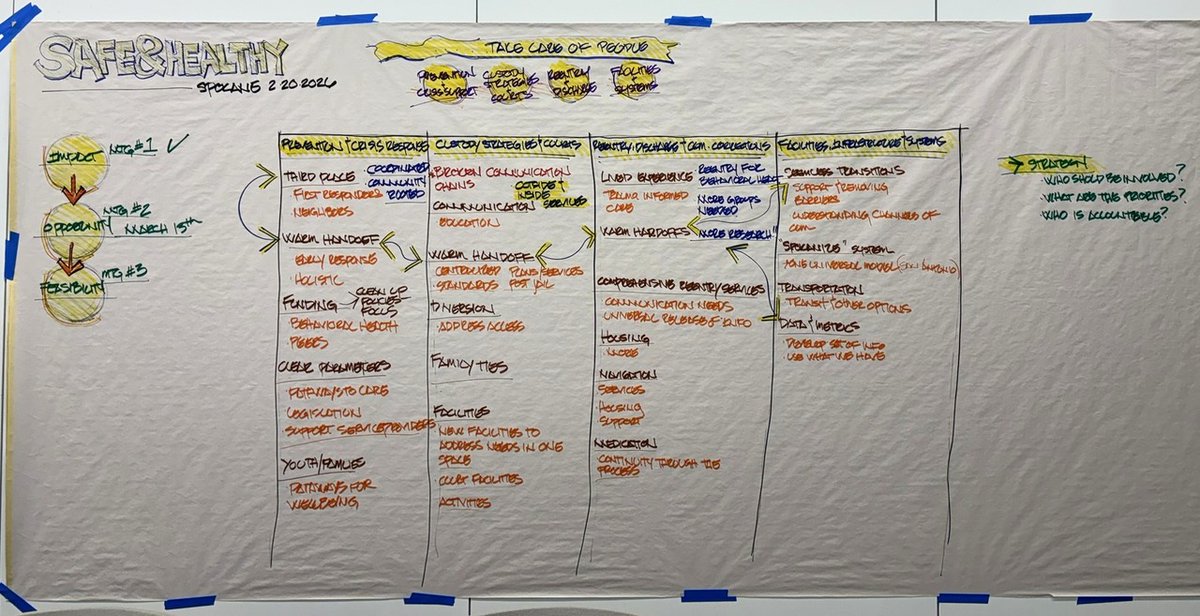 SAFE&HEALTHY
SPOKANE 2 20 2026
TAKE CARE OF PEOPLE
PREVENTION + CRISIS SUPPORT
CUSTODY STRATEGIES + COURTS
REENTRY + DISCHARGE
FACILITIES + SYSTEMS
IMPACT
MTG #1 ✓
OPPORTUNITY
MTG #2
MARCH 13th
FEASIBILITY
MTG #3
PREVENTION + CRISIS RESPONSE
THIRD PLACE
COORDINATED
COMMUNITY
ROOTED
FIRST RESPONDERS
NEIGHBORS
WARM HANDOFF
EARLY RESPONSE
HOLISTIC
FUNDING
CLEAN UP
POLICIES
FOCUS
BEHAVIORAL HEALTH
PEERS
CLEAR PARAMETERS
PATHWAYS TO CARE
LEGISLATION
SUPPORT SERVICE PROVIDERS
YOUTH/FAMILIES
PATHWAYS FOR
WELLBEING
CUSTODY STRATEGIES + COURTS
BROKEN COMMUNICATION
CHAINS
OUTSIDE +
INSIDE
SERVICES
COMMUNICATION
EDUCATION
WARM HANDOFF
CENTRALIZED
STANDARDS
PLANS/SERVICES
POST JAIL
DIVERSION
ADDRESS ACCESS
FAMILY TIES
FACILITIES
NEW FACILITIES TO
ADDRESS NEEDS IN ONE
SPACE
COURT FACILITIES
ACTIVITIES
REENTRY, DISCHARGE + COM. CONNECTIONS
LIVED EXPERIENCE
REENTRY FOR
BEHAVIORAL HEALTH
TRAUMA INFORMED
CARE
MORE GROUPS
NEEDED
WARM HANDOFFS
MORE RESEARCH
COMPREHENSIVE REENTRY SERVICES
COMMUNICATION NEEDS
UNIVERSAL RELEASE OF INFO
HOUSING
MORE
NAVIGATION
SERVICES
HOUSING
SUPPORT
MEDICATION
CONTINUITY THROUGH THE
PROCESS
FACILITIES, INFRASTRUCTURE + SYSTEMS
SEAMLESS TRANSITIONS
SUPPORT + REMOVING
BARRIERS
UNDERSTANDING CHANNELS OF
COM
"SPOKANIZE" SYSTEM
ONE UNIVERSAL MODEL (SAN ANTONIO)
TRANSPORTATION
TRANSIT + OTHER OPTIONS
DATA + METRICS
DEVELOP SET OF INFO
USE WHAT WE HAVE
→ STRATEGY
WHO SHOULD BE INVOLVED?
WHAT ARE THE PRIORITIES?
WHO IS ACCOUNTABLE?